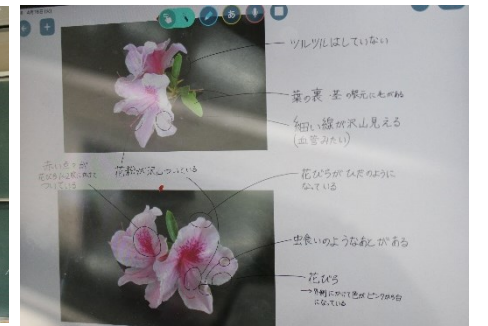 ツルツルはしていない
葉の裏・茎の根元に毛がある
細い線が沢山見える
(血管みたい)
花粉が沢山ついている
花びらがひだのように
なっている
虫食いのようなあとがある
花びら
→外側にかけて色がピンクから白
になっている